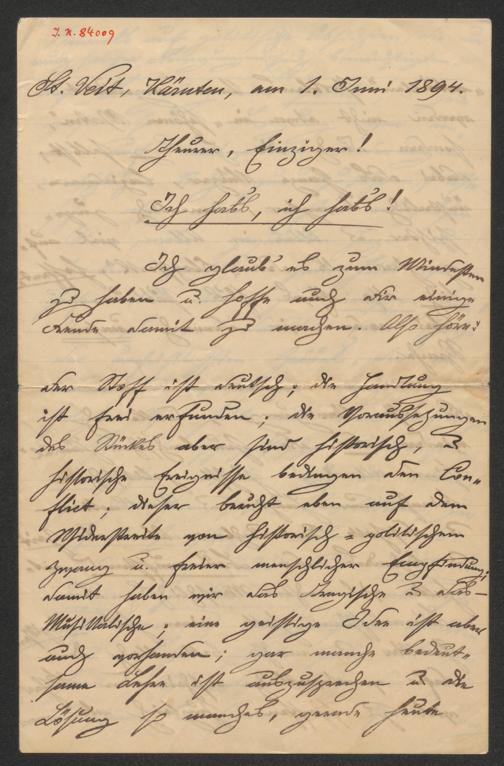 I.N. 84009
St. Veit, Kärnten, am 1. Juni 1894.
Theurer, Einziger!
Ich hab's, ich hab's!
Ich glaub' es zum Mindesten
zu haben u hoffe auch dir einige
Freude damit zu machen. Also hör':
der Stoff ist deutsch; die Handlung
ist frei erfunden; die Voraussetzungen
des Stückes aber sind historisch, u
historische Ereignisse bedingen den Con-
flict; dieser beruht eben auf dem
Widerstreite von historisch-politischem
Zwang u. freier menschlicher Empfindung;
damit haben wir das Tragische u das
Musikalische; eine geistige Idee ist aber
auch vorhanden; gar manche bedeut-
same Lehre ist auszusprechen u die
Lösung so manches, gerade heute